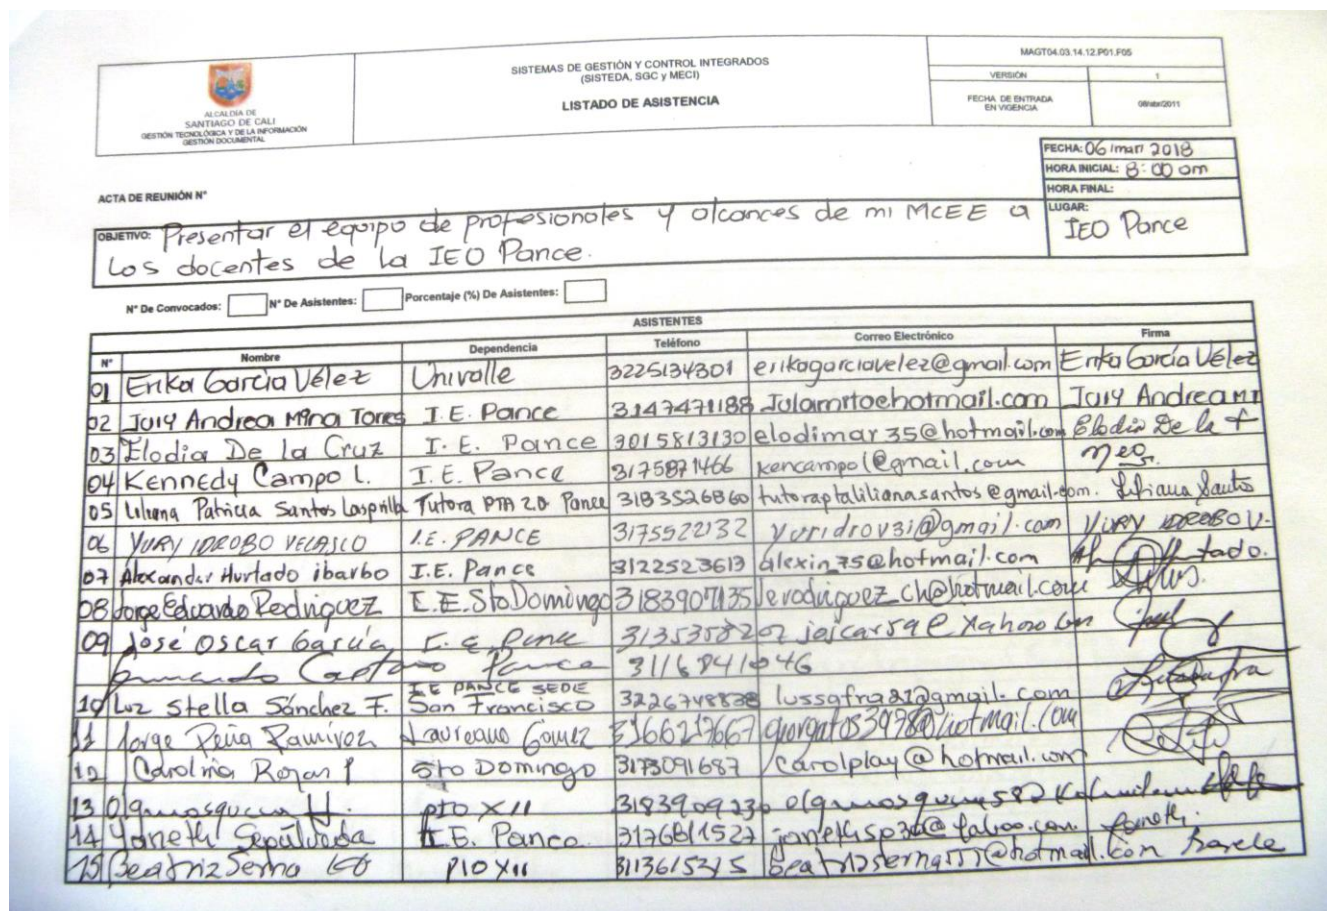 ALCALDÍA DE
SANTIAGO DE CALI
GESTIÓN TECNOLÓGICA Y DE LA INFORMACIÓN
GESTIÓN DOCUMENTAL
SISTEMAS DE GESTIÓN Y CONTROL INTEGRADOS
(SISTEDA, SGC y MECI)
LISTADO DE ASISTENCIA
MAGT04.03.14.12.P01.F05
VERSIÓN 1
FECHA DE ENTRADA EN VIGENCIA 08/abr/2011
FECHA: 06/mar/2018
HORA INICIAL: 8:00 am
HORA FINAL:
LUGAR: IEO Pance
ACTA DE REUNIÓN N°
OBJETIVO: Presentar el equipo de profesionales y alcances de mi MCEE a
Los docentes de la IEO Pance.
N° De Convocados: N° De Asistentes: Porcentaje (%) De Asistentes:
ASISTENTES
N° Nombre Dependencia Teléfono Correo Electrónico Firma
01 Erika García Vélez Univalle 3225134301 erikagarciavelez@gmail.com Erika García Vélez
02 July Andrea Mina Torres I.E. Pance 3147471188 Julamito@hotmail.com July Andrea MT
03 Elodia De la Cruz I.E. Pance 3015813130 elodimar35@hotmail.com Elodia De la
04 Kennedy Campo L. I.E. Pance 3175871466 kencampol@gmail.com
05 Liliana Patricia Santos Lasprilla Tutora PTA 2.0 Pance 3183526860 tutoraptalilianasantos@gmail.com. Liliana Santos
06 YURY IDROBO VELASCO I.E. PANCE 3175522132 yuridrov31@gmail.com YURY IDROBO V.
07 Alexander Hurtado ibarbo I.E. Pance 3122523613 alexin_75@hotmail.com Hurtado.
08 Jorge Eduardo Rodriguez I.E. Sto Domingo 3183907135 Jerodriguez_ch@hotmail.com
09 José Oscar García I.E. Pance joscar59@yahoo
Armando Pance 3116841046
10 Luz Stella Sánchez F. IE PANCE SEDE San Francisco 3226748838 lussafra21@gmail.com
11 Jorge Peña Ramírez Laureano Gomez 3166217667
12 Carolina Rojas P Sto Domingo 3173091687 carolplay@hotmail.com
13 Olga mosquera H. PIO XII 3183909230
14 Yaneth Sepúlveda I.E. Pance 3176811527 Janeth.
15 Beatriz Serna PIO XII 3113615315